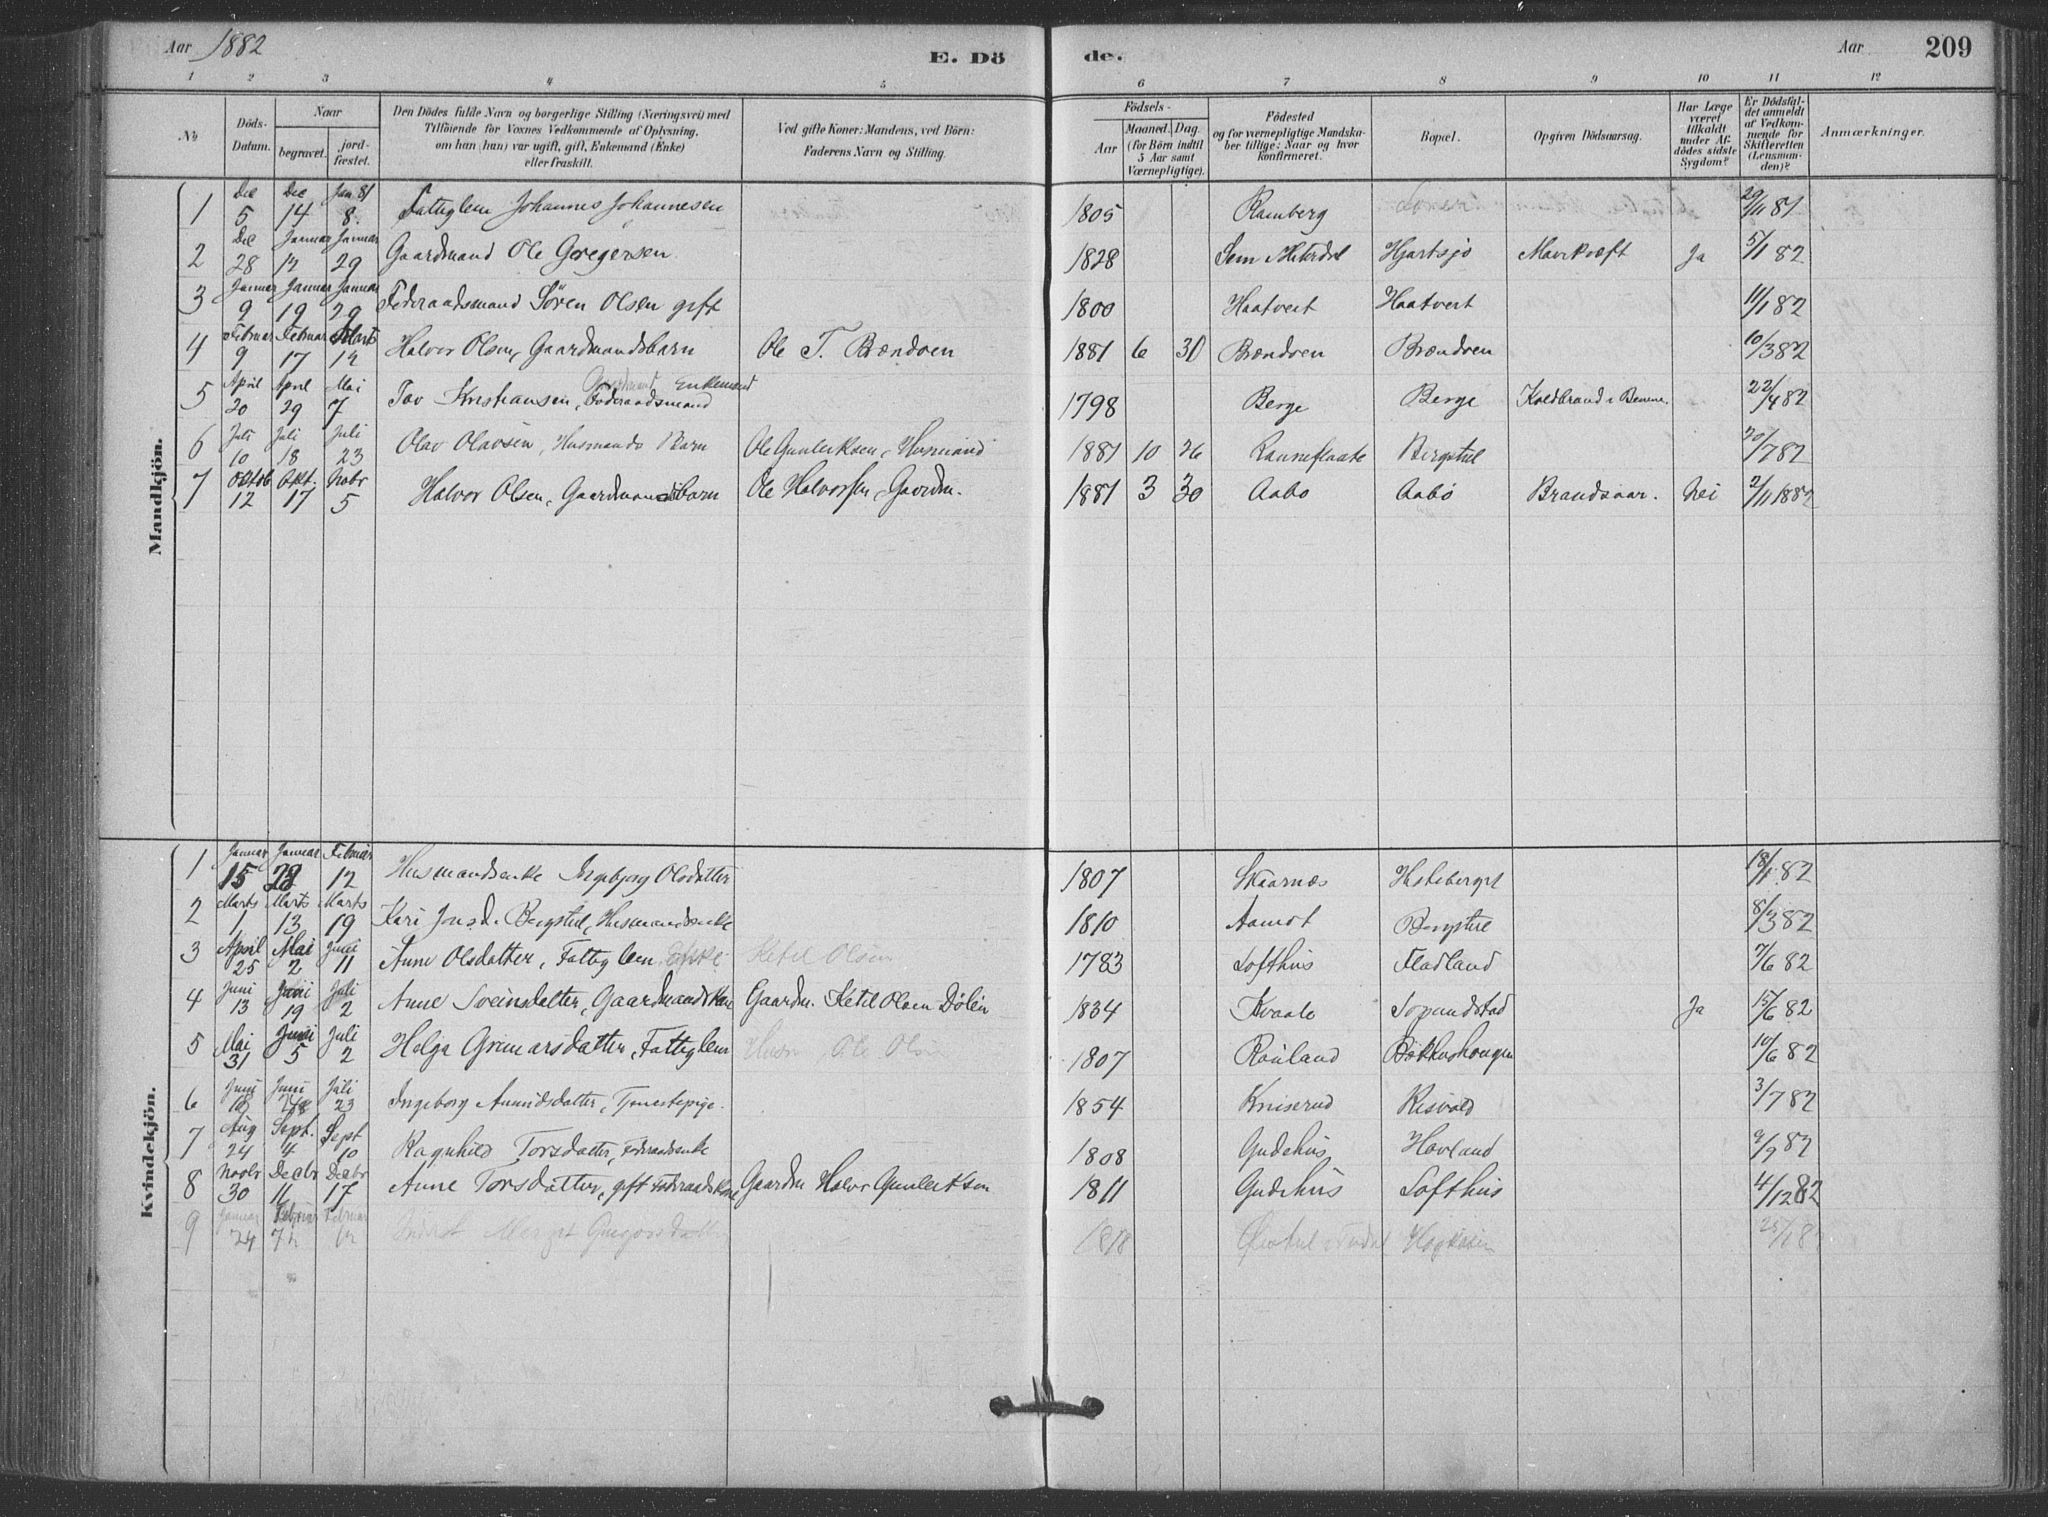 Aar 1882 E. Dö de. Aar 209
1 2 3 4 5 6 7 8 9 10 11 12
No Döds-Datum. Naar begravet. jordfæstet. Den Dödes fulde Navn og borgerlige Stilling (Næringsvei) med Tilföiende for Voxnes Vedkommende af Oplysning, om han (hun) var ugift, gift, Enkemand (Enke) eller fraskilt. Ved gifte Koner: Mandens, ved Börn: Faderens Navn og Stilling. Födsels- Aar Maaned. Dag. (for Börn indtil 5 Aar samt Værnepligtige). Födested og for værnepligtige Mandskaber tillige: Naar og hvor konfirmeret. Bopæl. Opgiven Dödsaarsag. Har Læge været tilkaldt under Afdödes sidste Sygdom? Er Dödsfaldet anmeldt af Vedkommende for Skifteretten (Lensmanden)? Anmærkninger.
Mandkjön.
1 Dec 5 Dec 14 Jan 81 8. Fattiglem Johannes Johannesen 1805 Ramberg 29/11 81
2 Dec 28 Januar 12 Januar 29 Gaardmand Ole Gregersen 1828 Sem Hiterdal Hjartsjø Mavekræft Ja 5/1 82
3 Januar 9 Januar 19 Januar 29 Føderaadsmand Sören Olsen gift 1800 Haatveit Haatveit 11/1 82
4 Februar 9 Februar 17 Marts 12 Halvor Olsen, Gaardmandsbarn Ole T. Brændøen 1881 6 30 Brændøen Brændøen 10/3 82
5 April 20 April 29 Mai 7 Tov Kristiansen, Gaardmand Enkemand Føderaadsmand 1798 Berge Berge Koldbrand i Benene. 22/4 82
6 Juli 10 Juli 18 Juli 23 Olav Olavsen, Husmands Barn Ole Gunleiksen, Husmand 1881 10 26 Ranneflaate Bergstul 20/7 82
7 Oktob 12 Okt. 17 Nobr 5 Halvor Olsen, Gaardmandsbarn Ole Halvorsen, Gaardm. 1881 3 30 Aabø Aabø Brandsaar. Nei 2/11 1882
Kvindekjön.
1 Januar 15 Januar 28 Februar 12 Husmandsenke Ingebjørg Olsdatter 1807 Skaarnæs Hesteberget 18/1 82
2 Marts 1 Marts 13 Marts 19 Kari Jonsd. Bergstul, Husmandsenke 1810 Aamot Bergstul 8/3 82
3 April 25 Mai 2 Juni 11 Anne Olsdatter, Fattiglem Enke Ketil Olsen 1783 Lofthus Fladland 7/6 82
4 Juni 13 Juni 19 Juli 2 Anne Sveinsdatter, Gaardmandskone Gaardm. Ketil Olsen Dølen 1834 Kvaale Sopandstad Ja 15/6 82
5 Mai 31 Juni 5 Juli 2 Helga Grimarsdatter, Fattiglem Husm Ole Ols 1807 Rauland Bøkkushougen 10/6 82
6 Juni Juni Juli 23 Ingeborg Amundsdatter, Tjenestepige. 1854 Kniserud Risvold 3/7 82
7 Aug 24 Sept. 4 Sept 10 Ragnhild Torsdatter, Føderaadsenke 1808 Gudehus Hovland 9/9 82
8 Novbr 30 Decbr 11 Decbr 17 Anne Torsdatter, gift Føderaadskone Gaardm Halvor Gunleiksen 1811 Gudehus Lofthus 4/12 82
9 Januar 24 Februar Februar 12 Margit Gregorsdatter 1818 25/1 8